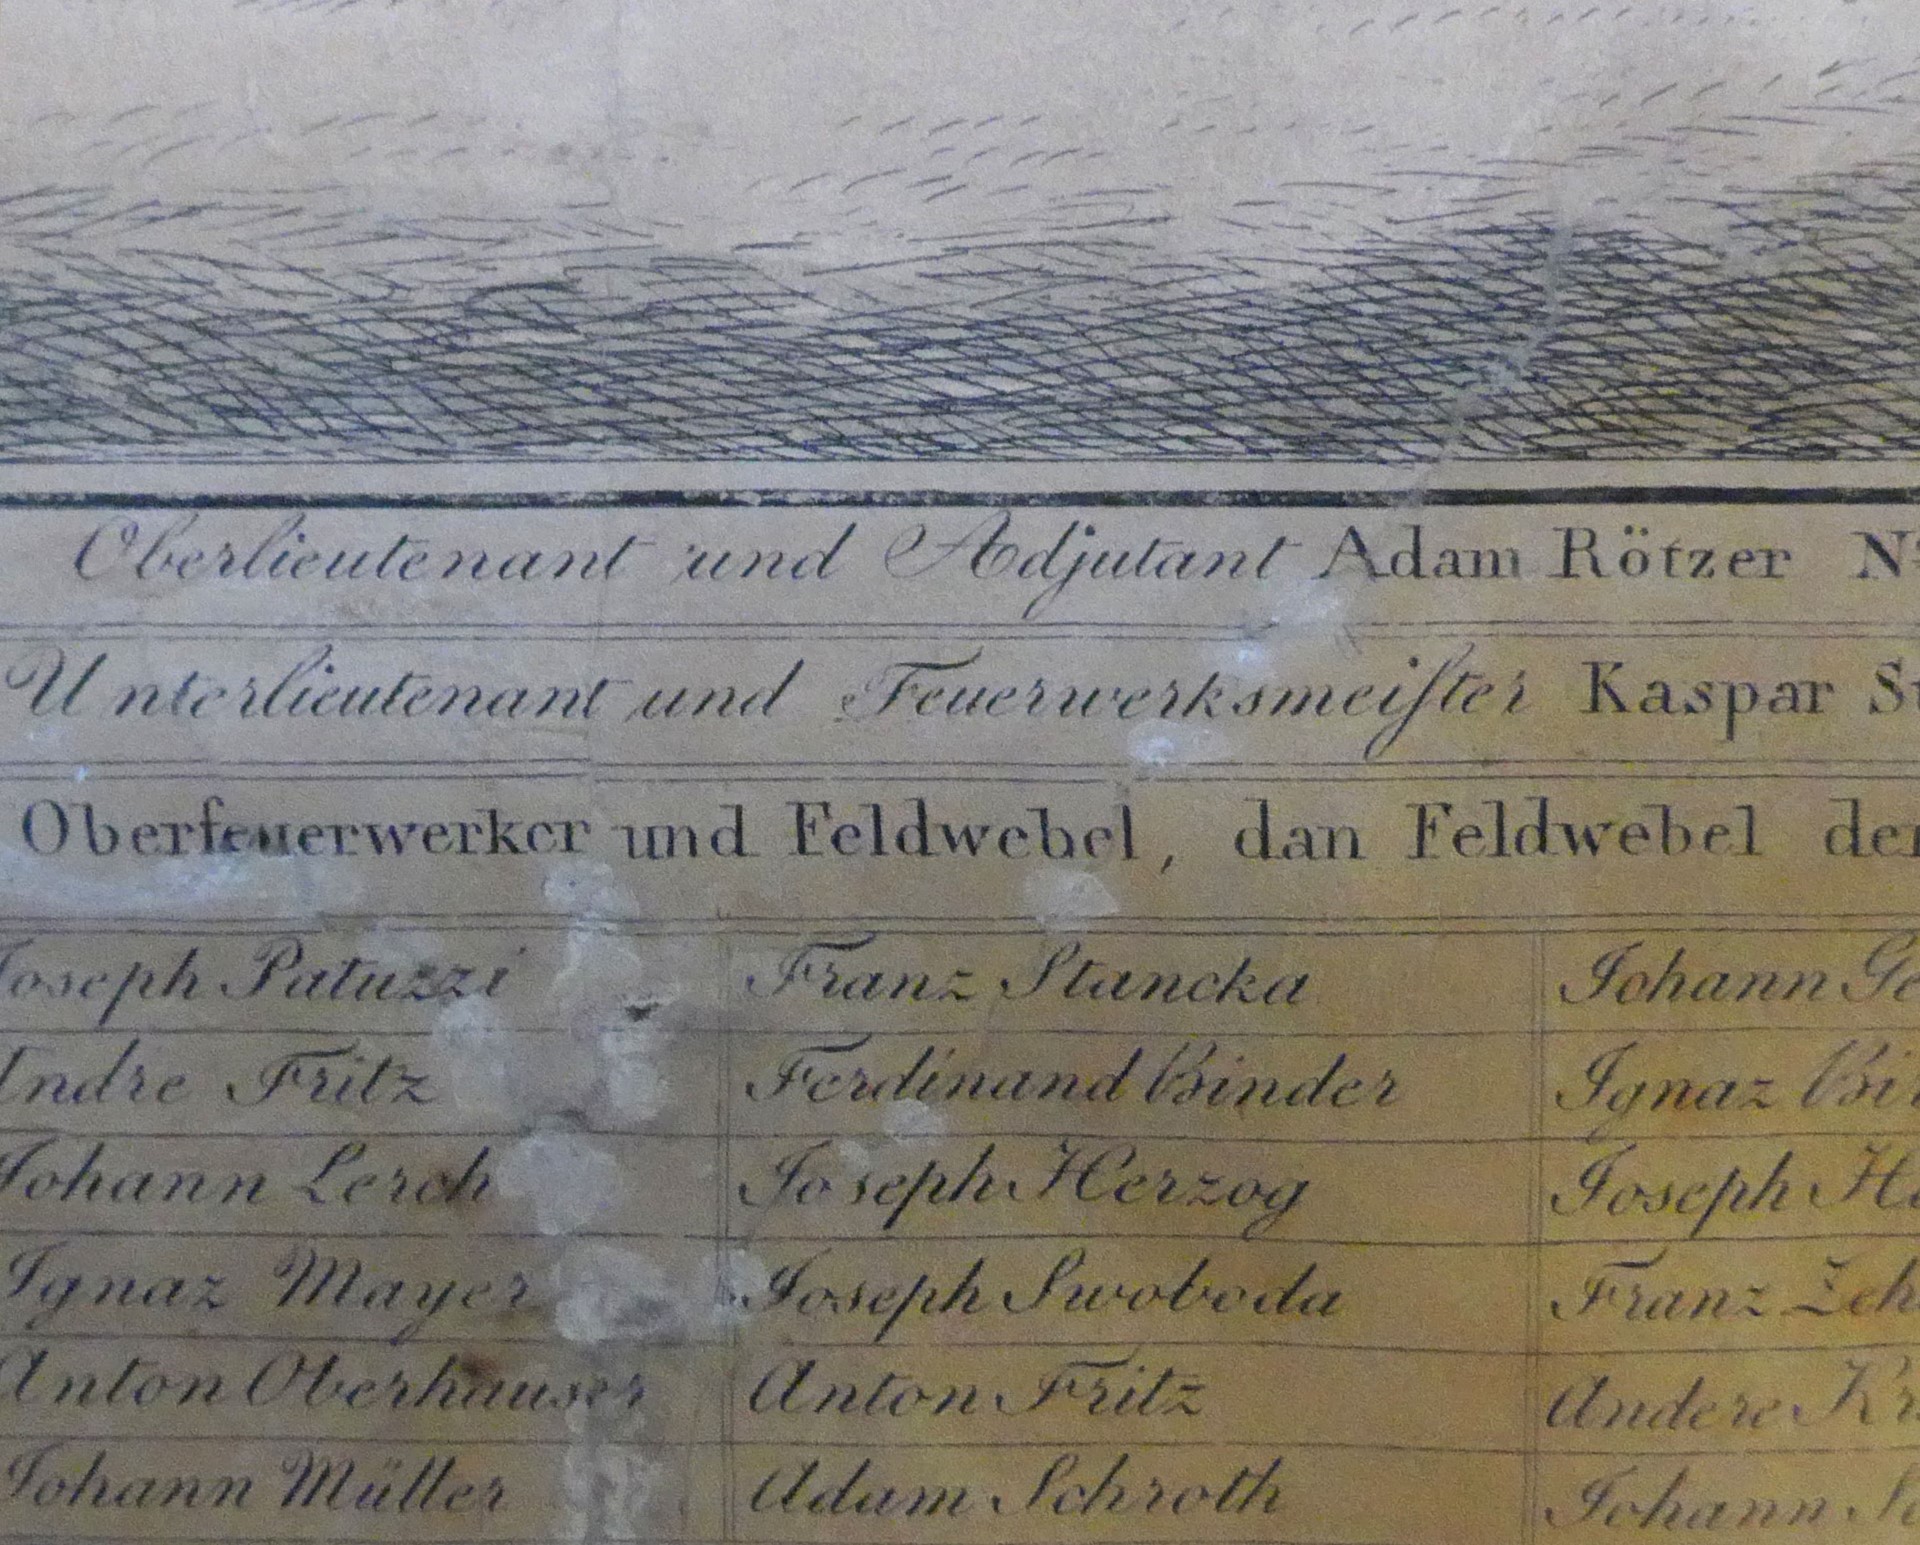 Oberlieutenant und Adjutant Adam Rötzer
Unterlieutenant und Feuerwerksmeiſter Kaspar
Oberfeuerwerker und Feldwebel, dan Feldwebel der
Joseph Patuzzi Franz Stancka Johann
Andre Fritz Ferdinand Binder Ignaz
Johann Lerch Joseph Herzog Joseph
Ignaz Mayer Joseph Swoboda Franz
Anton Oberhauser Anton Fritz Andere
Johann Müller Adam Schroth Johann